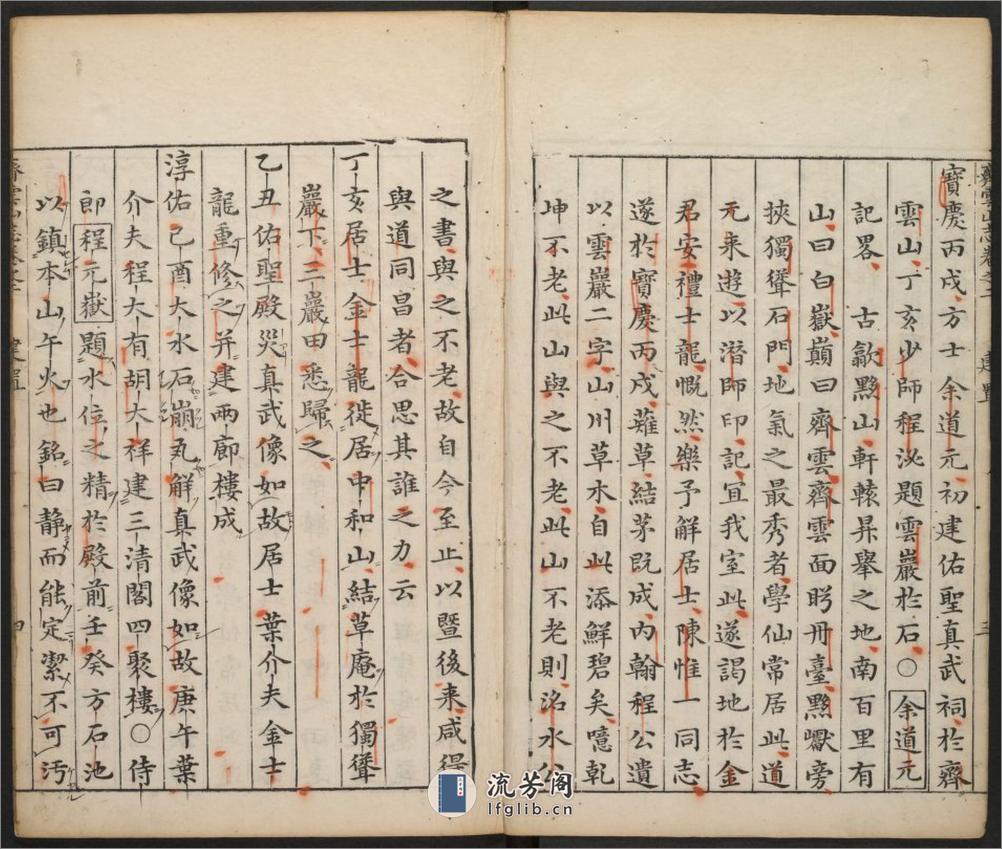 寶慶丙戍方士余道元初建佑聖真武祠於齊
雲山丁亥少師程泌題雲巖於石○余道元
記畧古歙黟山軒轅昇舉之地南百里有
山曰白嶽巔曰齊雲齊雲面盻丹臺黟巘旁
挾獨聳石門地氣之最秀者學仙常居此道
元来遊以潛師印記宜我室此遂謁地於金
君安禮士龍慨然樂予解居士陳惟一同志
遂於寶慶丙戍薙草結茅既成内翰程公遺
以雲巖二字山川草木自此添鮮碧矣噫乾
坤不老此山與之不老此山不老則洺水公
之書與之不老故自今至止以暨後来咸得
與道同昌者合思其誰之力云
丁亥居士金士龍徙居中和山結草庵於獨聳
巖下三巖田悉歸之
乙丑佑聖殿災真武像如故居士葉介夫金士
龍重修之并建兩廊樓成
淳佑己酉大水石崩瓦解真武像如故庚午葉
介夫程大有胡大祥建三清閣四聚樓○侍
郎程元嶽題水位之精於殿前壬癸方石池
以鎮本山午火也銘曰静而能定潔不可汚
齊雲山志卷之二 建置 三
建置 四
流芳阁
lfglib.cn